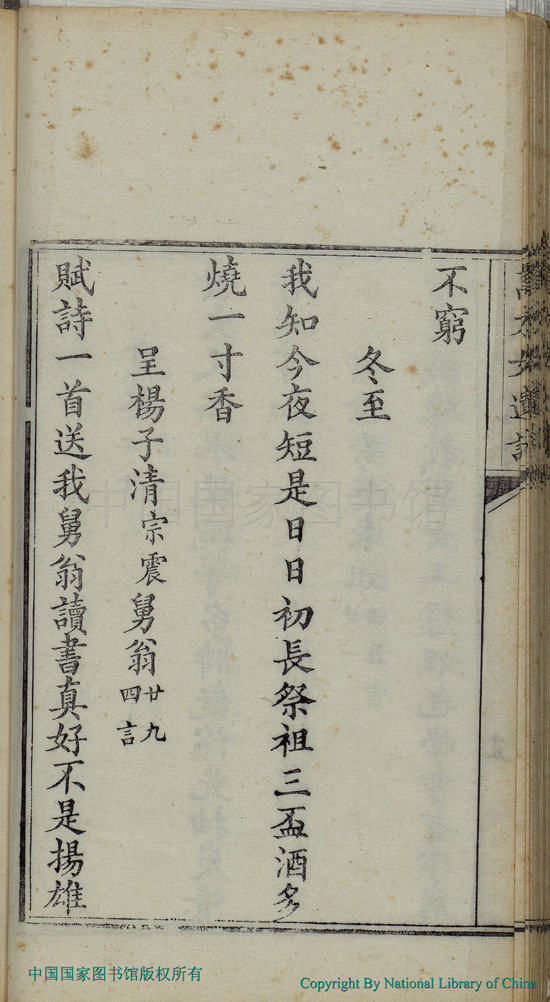 不窮
冬至
我知今夜短是日日初長祭祖三盃酒多
燒一寸香
呈楊子清宗震舅翁廿九四言
賦詩一首送我舅翁讀書真好不是揚雄
中国国家图书馆
中国国家图书馆版权所有
Copyright By National Library of China